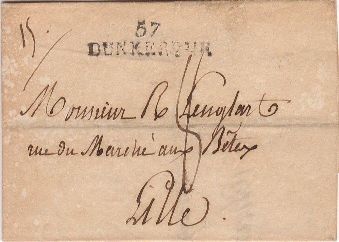 15.
57
DUNKERQUE
Monsieur R Lenglart
rue du Marché aux Bêtes
Lille.